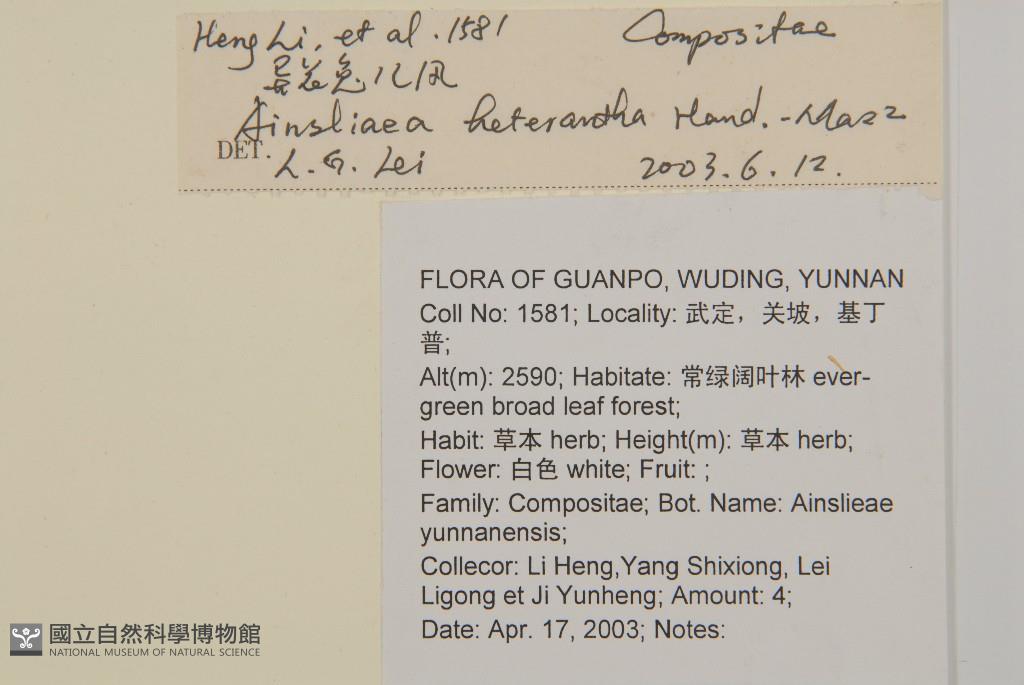 Heng Li, et al. 1581 Compositae
异花兔儿风
Ainsliaea heterantha Hand.-Mazz
DET. L. G. Lei 2003. 6. 12.
FLORA OF GUANPO, WUDING, YUNNAN
Coll No: 1581; Locality: 武定，关坡，基丁
普;
Alt(m): 2590; Habitate: 常绿阔叶林 ever-
green broad leaf forest;
Habit: 草本 herb; Height(m): 草本 herb;
Flower: 白色 white; Fruit: ;
Family: Compositae; Bot. Name: Ainslieae
yunnanensis;
Collecor: Li Heng,Yang Shixiong, Lei
Ligong et Ji Yunheng; Amount: 4;
Date: Apr. 17, 2003; Notes:
國立自然科學博物館
NATIONAL MUSEUM OF NATURAL SCIENCE